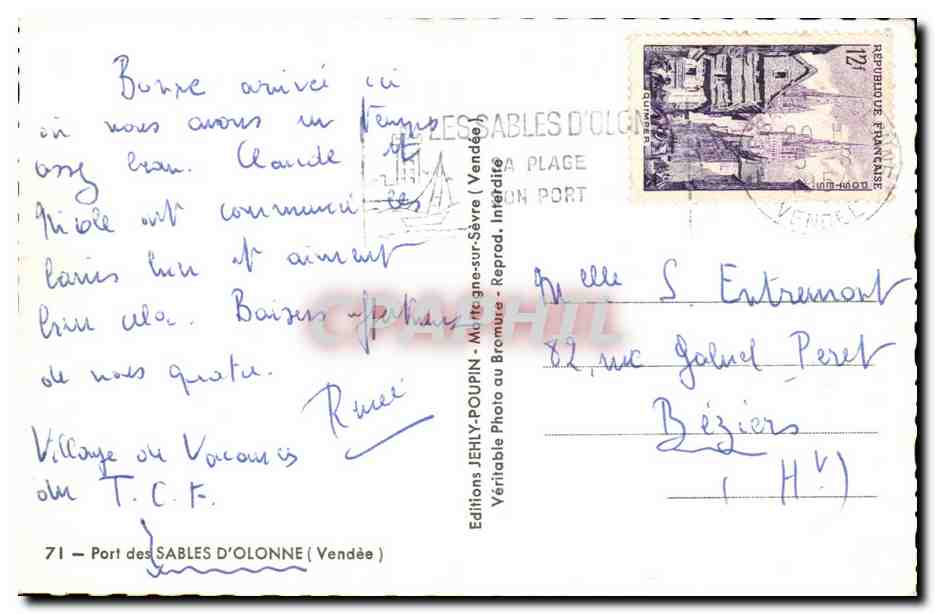 Bonne arrivée ici
où nous avons un temps
assez beau. Claude et
Nicole ont commencé les
bains hier et aiment
bien cela. Baisers affectueux
de nous quatre.
Renée
Village de Vacances
du T.C.F.
71 — Port des SABLES D'OLONNE ( Vendée )
Editions JEHLY-POUPIN - Mortagne-sur-Sèvre ( Vendée )
Véritable Photo au Bromure - Reprod. Interdite
LES SABLES D'OLON
SA PLAGE
SON PORT
RÉPUBLIQUE FRANÇAISE
12f
QUIMPER
POSTES
VENDÉE
Melle S. Entremont
82, rue Gabriel Peret
Béziers
( Hv)
CPAPHIL